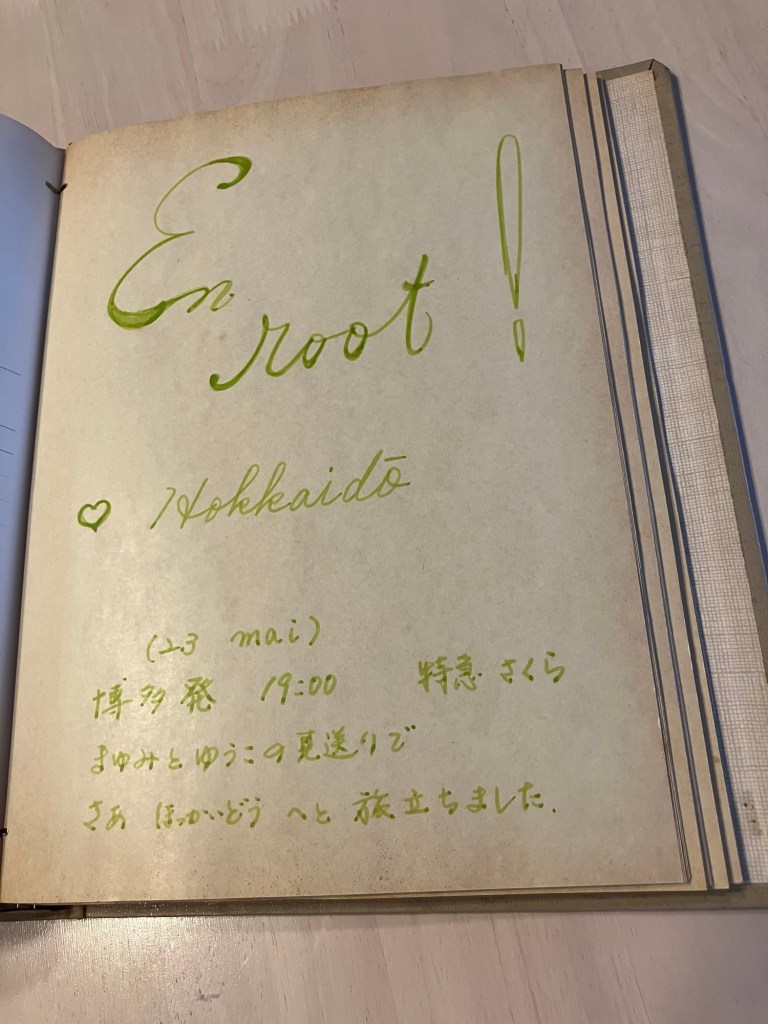 En root !
♡ Hokkaidō
(23 mai)
博多発 19:00 特急 さくら
まゆみとゆうこの見送りで
さあ ほっかいどう へと 旅立ちました.